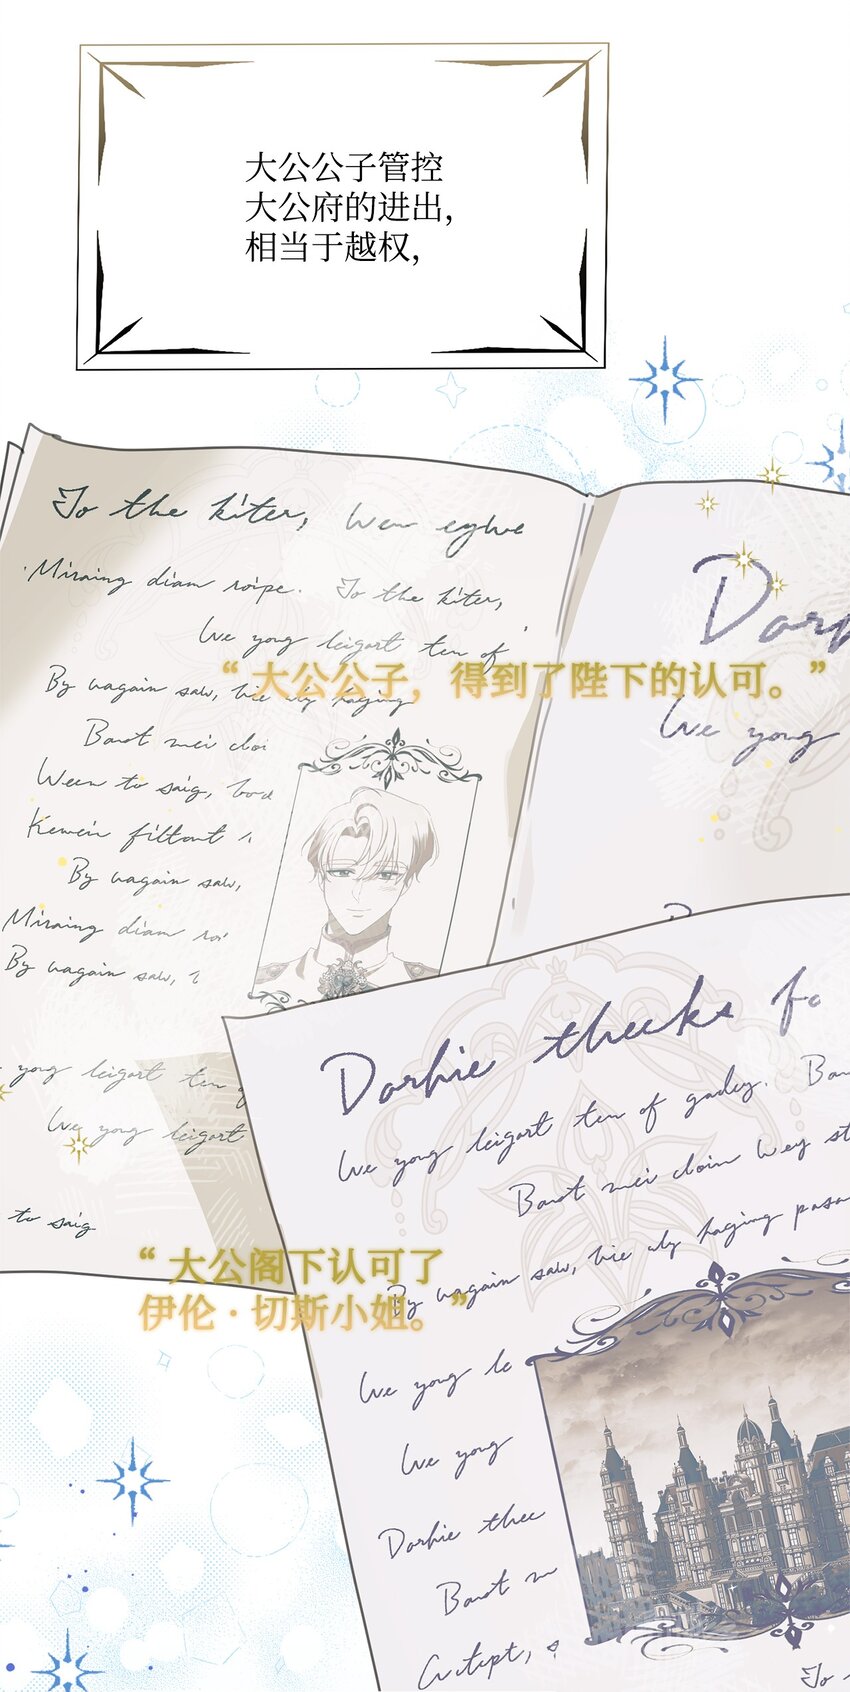 大公公子管控
大公府的进出，
相当于越权，
To the kiter, Wen eglve
Miraing diam roipe. To the kiter,
We yong leigart ten of
“大公公子，得到了陛下的认可。”
By wagain saw, hie uly haging
Barot mei cloi
Ween to saig,
Kewein filtont
By wagain saw,
Miraing diam roi
By wagain saw,
yong leigart ten
We yong leigart
to saig
We yong
Dorhie thecks fo
We yong leigart ten of gadey. Ba
Barot mei cloin Wey st
By wagain saw, hie uly haging pasa
“大公阁下认可了
伊伦·切斯小姐。”
We yong le
We yong
Dorhie thec
Barot m
To